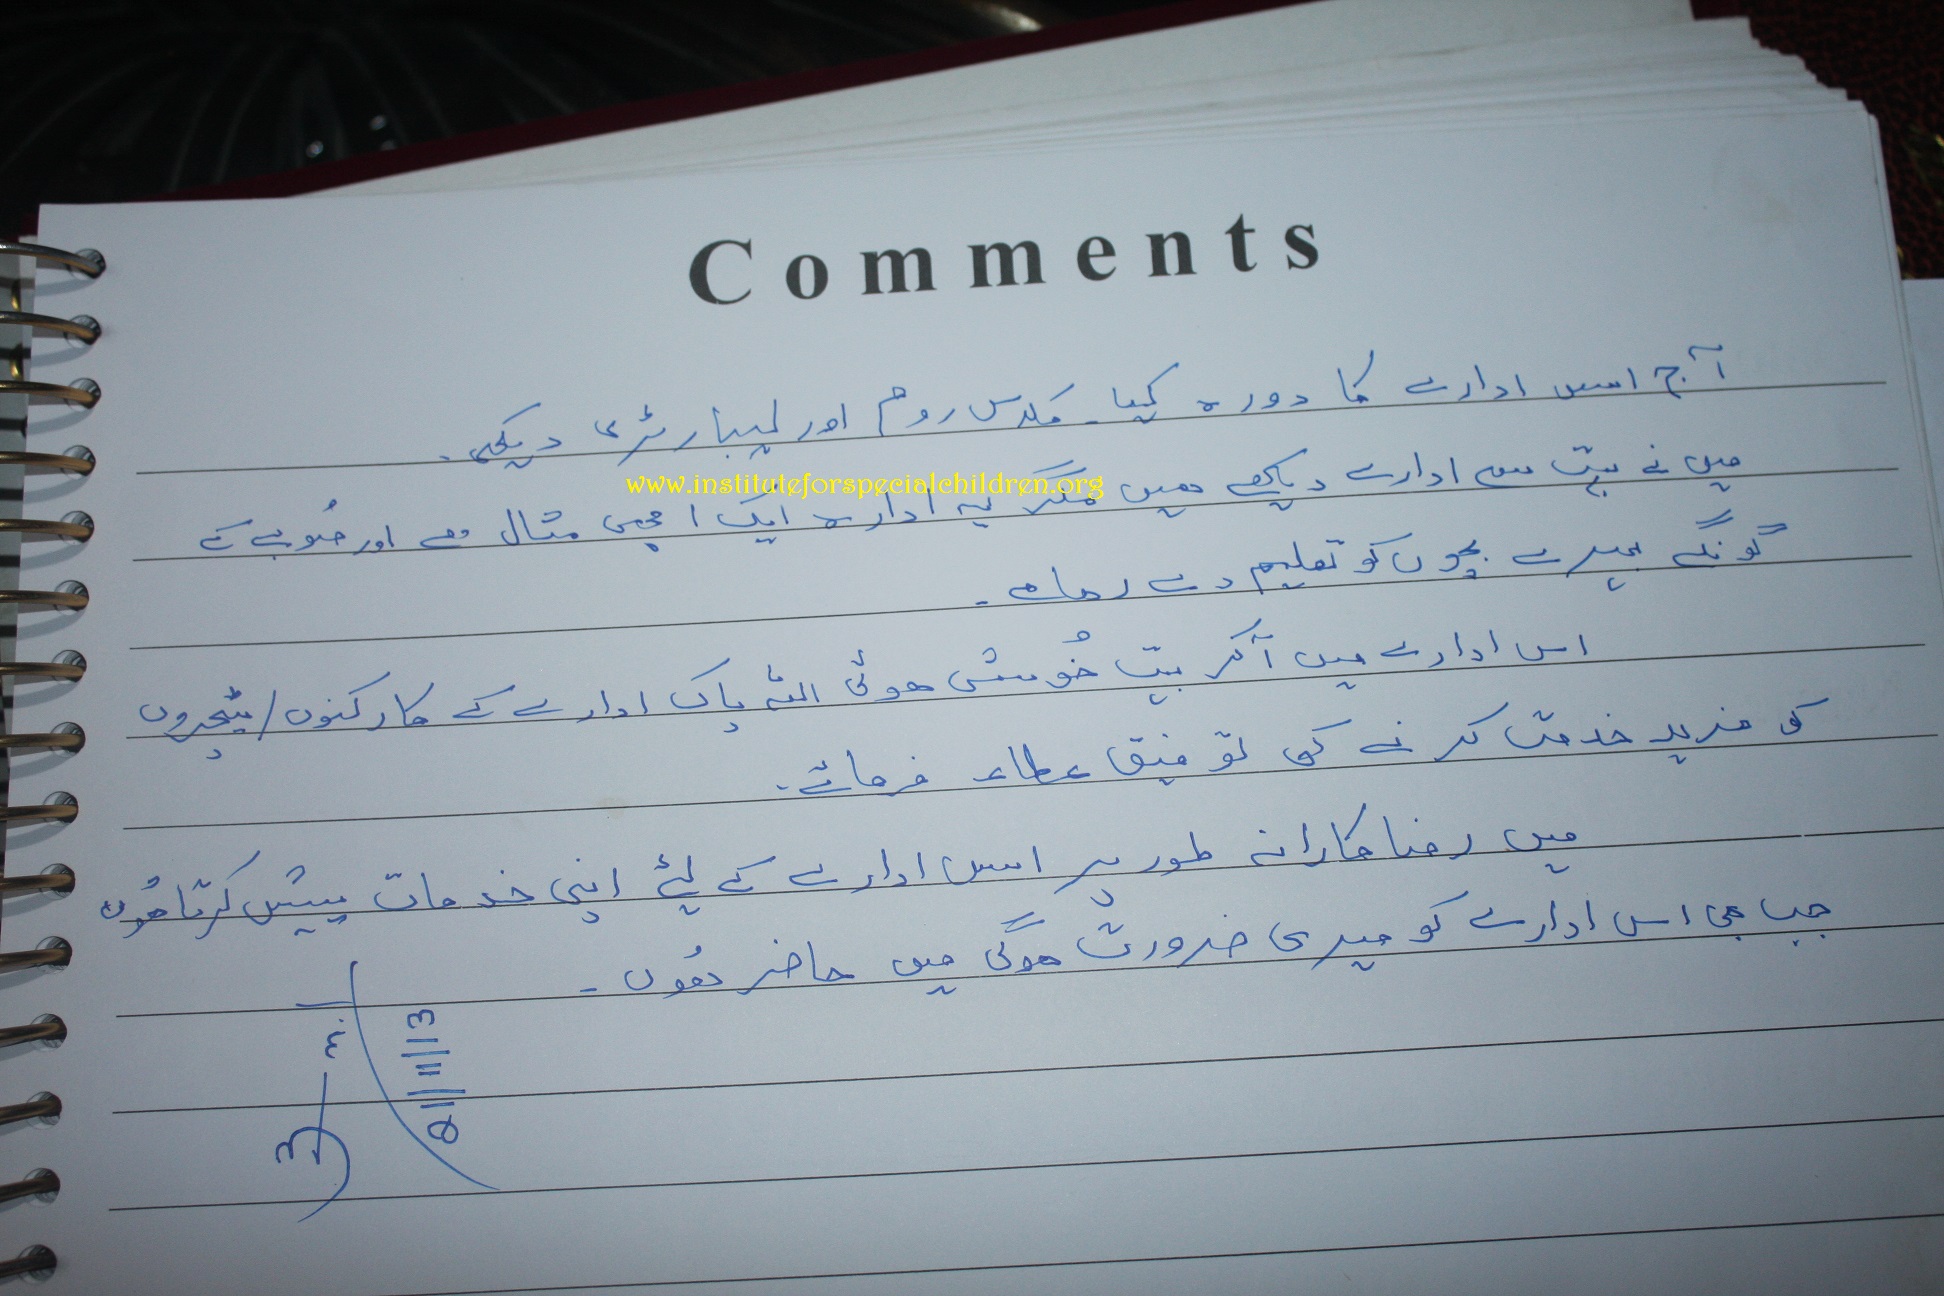 Comments
آج اس ادارے کا دورہ کیا۔ کلاس روم اور لیبارٹری دیکھی۔
میں نے بہت سے ادارے دیکھے ہیں مگر یہ ادارہ ایک اچھی مثال ہے اور صُوبے کے
www.instituteforspecialchildren.org
گونگے بہرے بچوں کو تعلیم دے رہا ہے۔
اس ادارے میں آکر بہت خُوشی ہوئی اللہ پاک ادارے کے کارکنوں/ٹیچروں
کو مزید خدمت کرنے کی توفیق عطاء فرمائے۔
میں رضاکارانہ طور پر اس ادارے کے لئے اپنی خدمات پیش کرتا ہُوں
جب بھی اس ادارے کو میری ضرورت ہوگی میں حاضر ہُوں۔